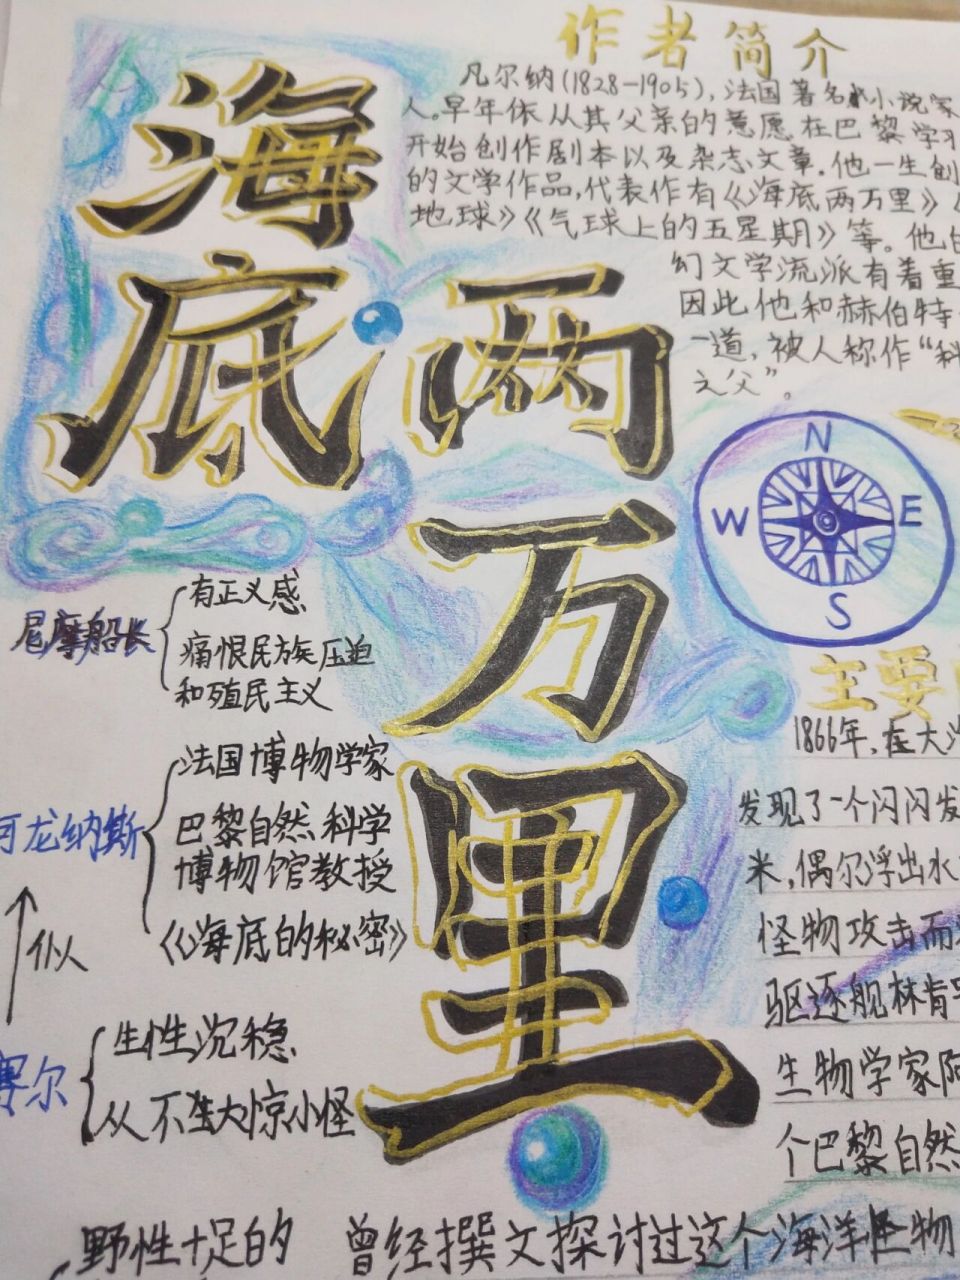 海底两万里
作者简介
凡尔纳(1828-1905),法国著名小说家
人。早年依从其父亲的意愿在巴黎学习
开始创作剧本以及杂志文章.他一生创
的文学作品,代表作有《海底两万里》《
地球》《气球上的五星期》等。他
幻文学流派有着重
因此他和赫伯特
一道,被人称作“科
之父”。
N
W E
S
尼摩船长
有正义感
痛恨民族压迫
和殖民主义
阿龙纳斯
法国博物学家
巴黎自然科学
博物馆教授
《海底的秘密》
仆人
塞尔
生性沉稳
从不大惊小怪
主要
1866年,在大
发现了一个闪闪发
米,偶尔浮出水
怪物攻击而
驱逐舰林肯
生物学家阿
个巴黎自然
野性十足的
曾经撰文探讨过这个海洋怪物